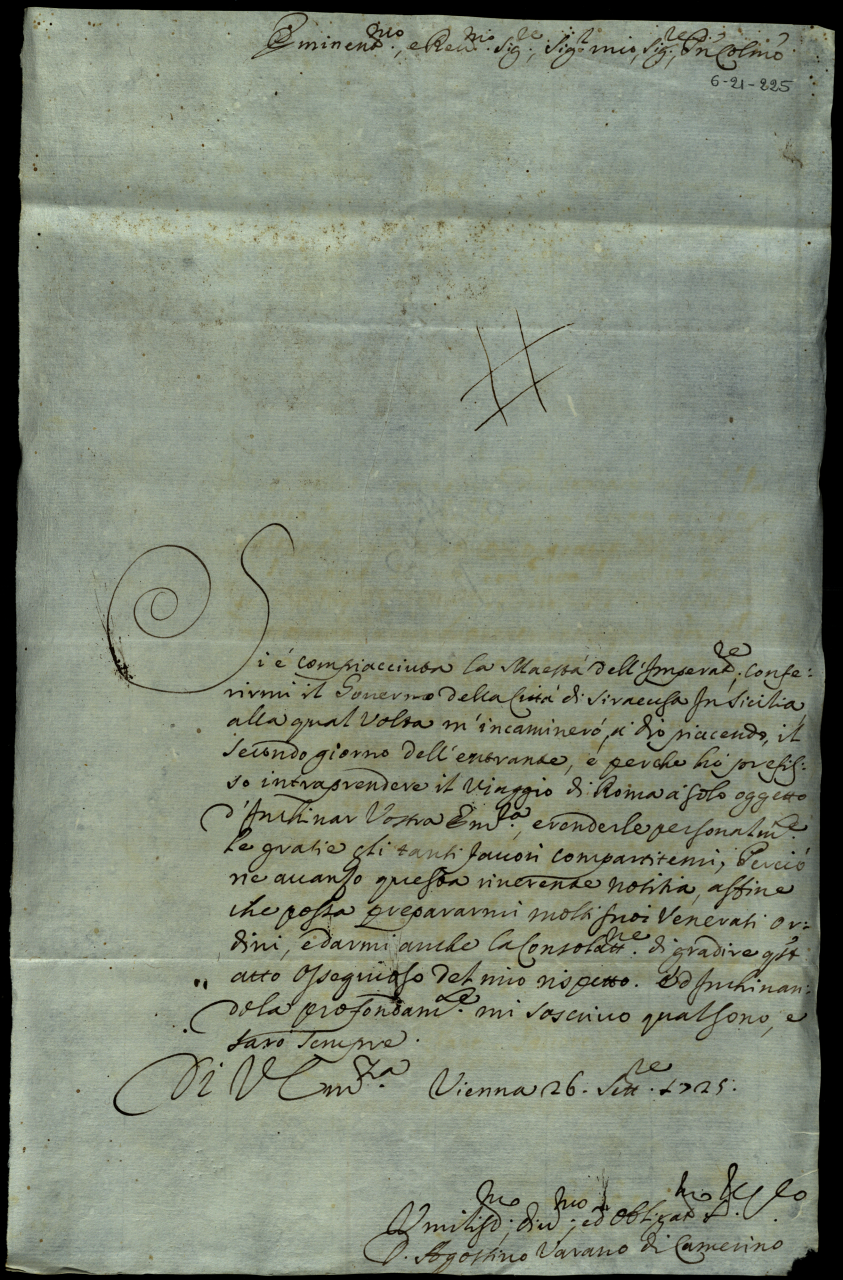 Eminent.mo, e Reu.mo Sig.re, Sig.r mio, Sig.re, Pn Colmo
6-21-225
Si é compiacciuta la Maestá dell'Imperat.re, confe:
rirmi il Gouerno della Cittá di Siracusa In Sicilia,
alla qual Volta m'incamineró, a dio piacendo, il
secondo giorno dell'entrante, e perche hó prefis:
so intraprendere il Viaggio di Roma á solo oggetto
d'Inchinar Vostra Em.za, e renderle personalm.te
le gratie gli tanti fauori compartitemi, Perció
ne auanzo questa riuerente notitia, affine
che possa prepararmi molti suoi Venerati or:
dini, e darmi anche la Consolat.ne di gradire qst
atto Ossequioso del mio rispetto. Ed Inchinan:
dola profondam.te mi soscriuo qual sono, e
saró sempre.
Di V Em.za Vienna 26. Sett.re 1725.
Umiliss.mo, diu.mo, ed Obligat.mo
D. Agostino Varano di Camerino